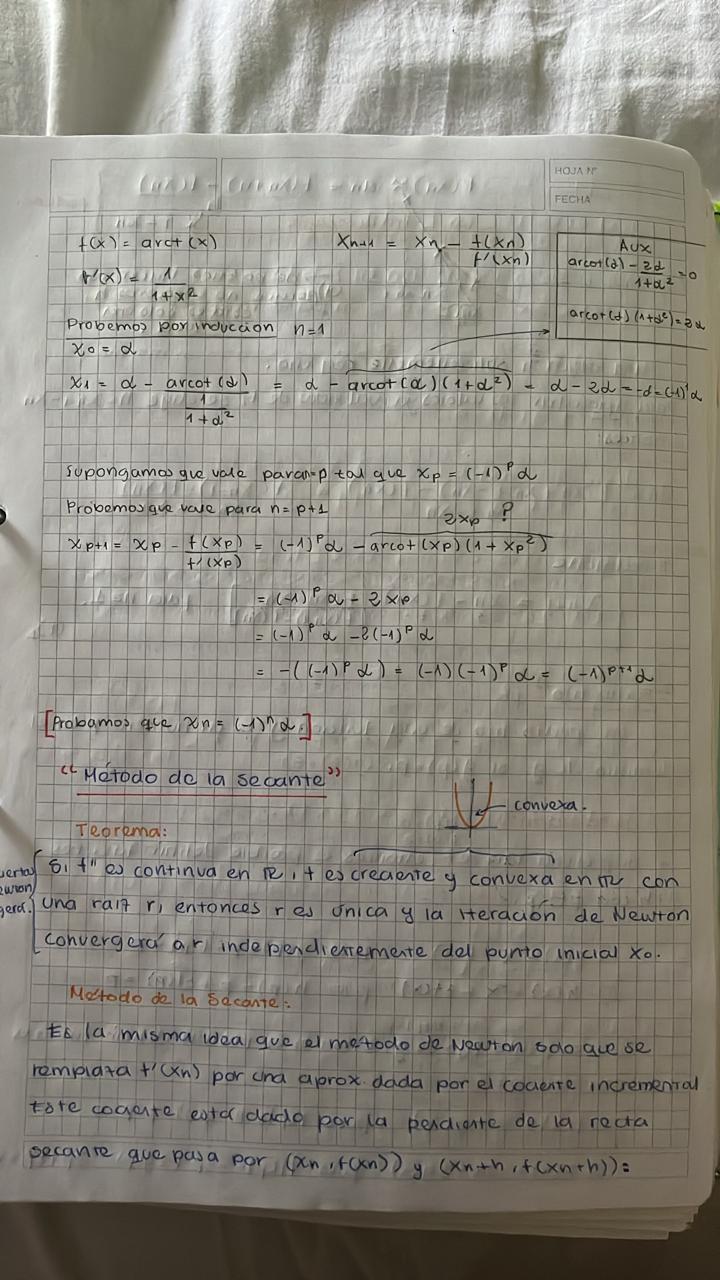 HOJA N°
FECHA
f(x) = arct(x)
Xn+1 = Xn - f(Xn)/f'(Xn)
f'(x) = 1/(1+x²)
Aux
arcot(α) - 2α/(1+α²) = 0
arcot(α)(1+α²) = 2α
Probemos por inducción n=1
x0 = α
x1 = α - arcot(α)/(1/(1+α²)) = α - arcot(α)(1+α²) = α - 2α = -α = (-1)¹α
Supongamos que vale para n=p tal que xp = (-1)^p α
Probemos que vale para n=p+1
2xp ?
xp+1 = xp - f(xp)/f'(xp) = (-1)^p α - arcot(xp)(1+xp²)
= (-1)^p α - 2xp
= (-1)^p α - 2(-1)^p α
= -((-1)^p α) = (-1)(-1)^p α = (-1)^p+1 α
[Probamos que xn = (-1)^n α.]
“Método de la secante”
convexa.
Teorema:
Si f'' es continua en R, f es creciente y convexa en R con
una raíz r, entonces r es única y la iteración de Newton
convergerá a r independientemente del punto inicial x0.
Método de la Secante:
Es la misma idea que el método de Newton solo que se
remplaza f'(xn) por una aprox dada por el cociente incremental
Este cociente está dado por la pendiente de la recta
secante que pasa por (xn, f(xn)) y (xn+h, f(xn+h)):